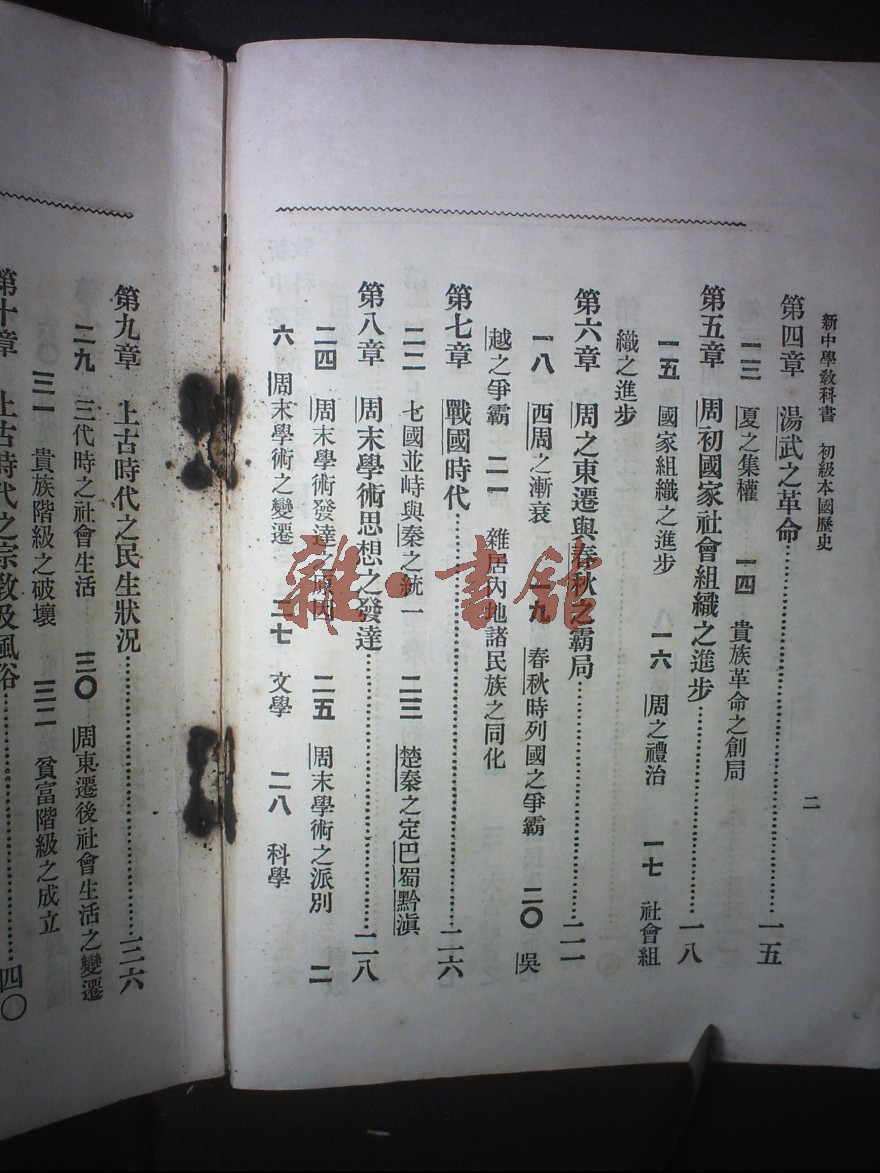 新中學敎科書　初級本國歷史　二
第四章　湯武之革命……一五
一三　夏之集權　一四　貴族革命之創局
第五章　周初國家社會組織之進步……一八
一五　國家組織之進步　一六　周之禮治　一七　社會組
織之進步
第六章　周之東遷與春秋之霸局……二一
一八　西周之漸衰　一九　春秋時列國之爭霸　二〇　吳
越之爭霸　二一　雜居內地諸民族之同化
第七章　戰國時代……二六
二二　七國並峙與秦之統一　二三　楚秦之定巴蜀黔滇
第八章　周末學術思想之發達……二八
二四　周末學術發達之原因　二五　周末學術之派別　二
六　周末學術之變遷　二七　文學　二八　科學
第九章　上古時代之民生狀況……三六
二九　三代時之社會生活　三〇　周東遷後社會生活之變遷
三一　貴族階級之破壞　三二　貧富階級之成立
第十章　上古時代之宗敎及風俗……四〇
雜·書館